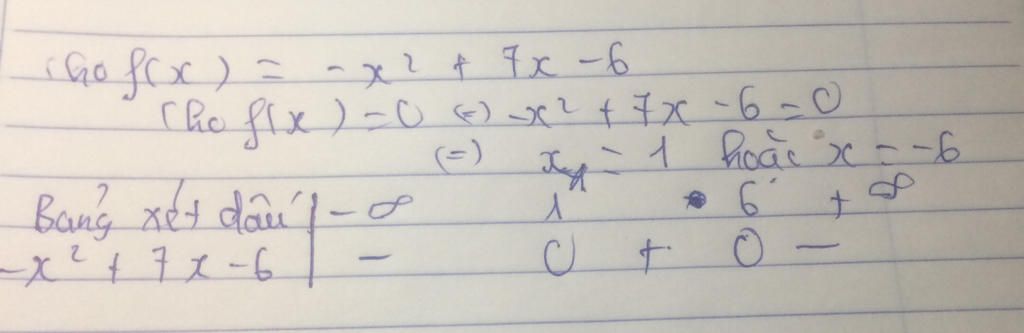 Cho f(x) = -x² + 7x - 6
Cho f(x) = 0 (=) -x² + 7x - 6 = 0
(=) x = 1 hoặc x = -6
Bảng xét dấu | -∞ 1 6 +∞
-x² + 7x - 6 | - 0 + 0 -